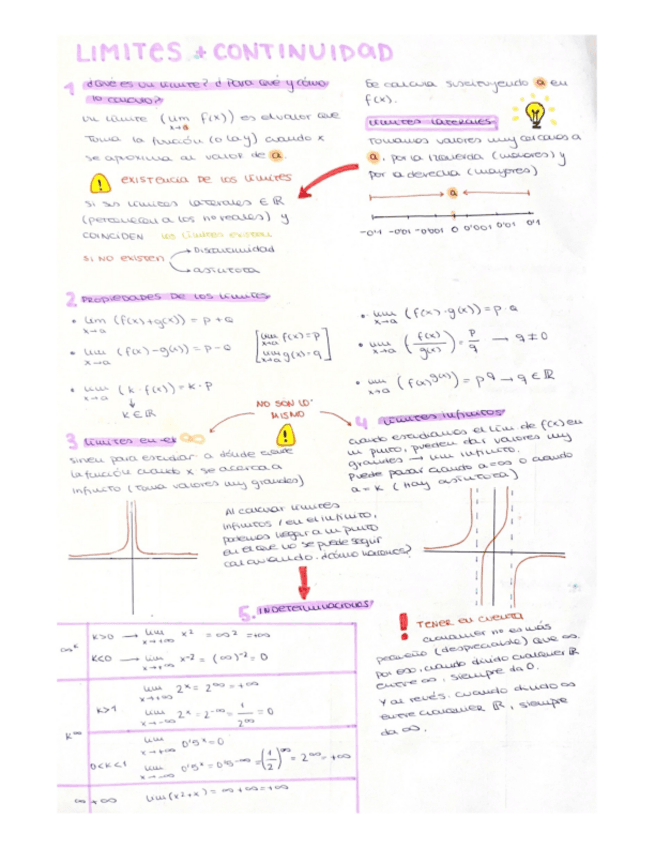 LIMITES + CONTINUIDAD
1 ¿Qué es un límite? ¿Para qué y cómo
lo calculo?
Un límite (lim x→a f(x)) es el valor que
toma la función (o la y) cuando x
se aproxima al valor de a.
Se calcula sustituyendo a en
f(x).
LÍMITES LATERALES
Tomamos valores muy cercanos a
a, por la izquierda (menores) y
por la derecha (mayores)
a
-0'1 -0'01 -0'001 0 0'001 0'01 0'1
! EXISTENCIA DE LOS LÍMITES
Si sus límites laterales ∈ ℝ
(pertenecen a los nº reales) y
COINCIDEN los límites existen
SI NO EXISTEN → Discontinuidad
→ asíntota
2 PROPIEDADES DE LOS LÍMITES
• lim x→a (f(x)+g(x)) = p+q
• lim x→a (f(x)-g(x)) = p-q
[lim x→a f(x)=p
lim x→a g(x)=q]
• lim x→a (k·f(x)) = k·p
↓
k∈ℝ
• lim x→a (f(x)·g(x)) = p·q
• lim x→a (f(x)/g(x)) = p/q → q≠0
• lim x→a (f(x)^g(x)) = p^q → q∈ℝ
NO SON LO
MISMO
!
3 Límites en el ∞
sirven para estudiar a dónde
la función cuando x se acerca a
infinito (toma valores muy grandes)
4 Límites infinitos
cuando estudiamos el lím de f(x) en
un punto, pueden dar valores muy
grandes → lim infinito.
Puede pasar cuando a=∞ o cuando
a=k (Hay asíntota)
Al calcular límites
infinitos / en el infinito,
podemos llegar a un punto
en el que no se puede seguir
calculando. ¿Cómo lo hacemos?
5. INDETERMINACIONES
∞^k
k>0 → lim x→+∞ x² = ∞² = +∞
k<0 → lim x→+∞ x⁻² = (∞)⁻² = 0
k^∞
k>1
lim x→+∞ 2^x = 2^∞ = +∞
lim x→-∞ 2^x = 2^-∞ = 1/2^∞ = 0
0<k<1
lim x→+∞ 0'5^x = 0
lim x→-∞ 0'5^x = 0'5^-∞ = (1/2)^∞ = 2^∞ = +∞
∞+∞
lim (x²+x) = ∞+∞ = +∞
! TENER EN CUENTA
cualquier nº es más
pequeño (despreciable) que ∞.
Por eso, cuando divido cualquier ℝ
entre ∞, siempre da 0.
Y al revés. cuando divido ∞
entre cualquier ℝ, siempre
da ∞.